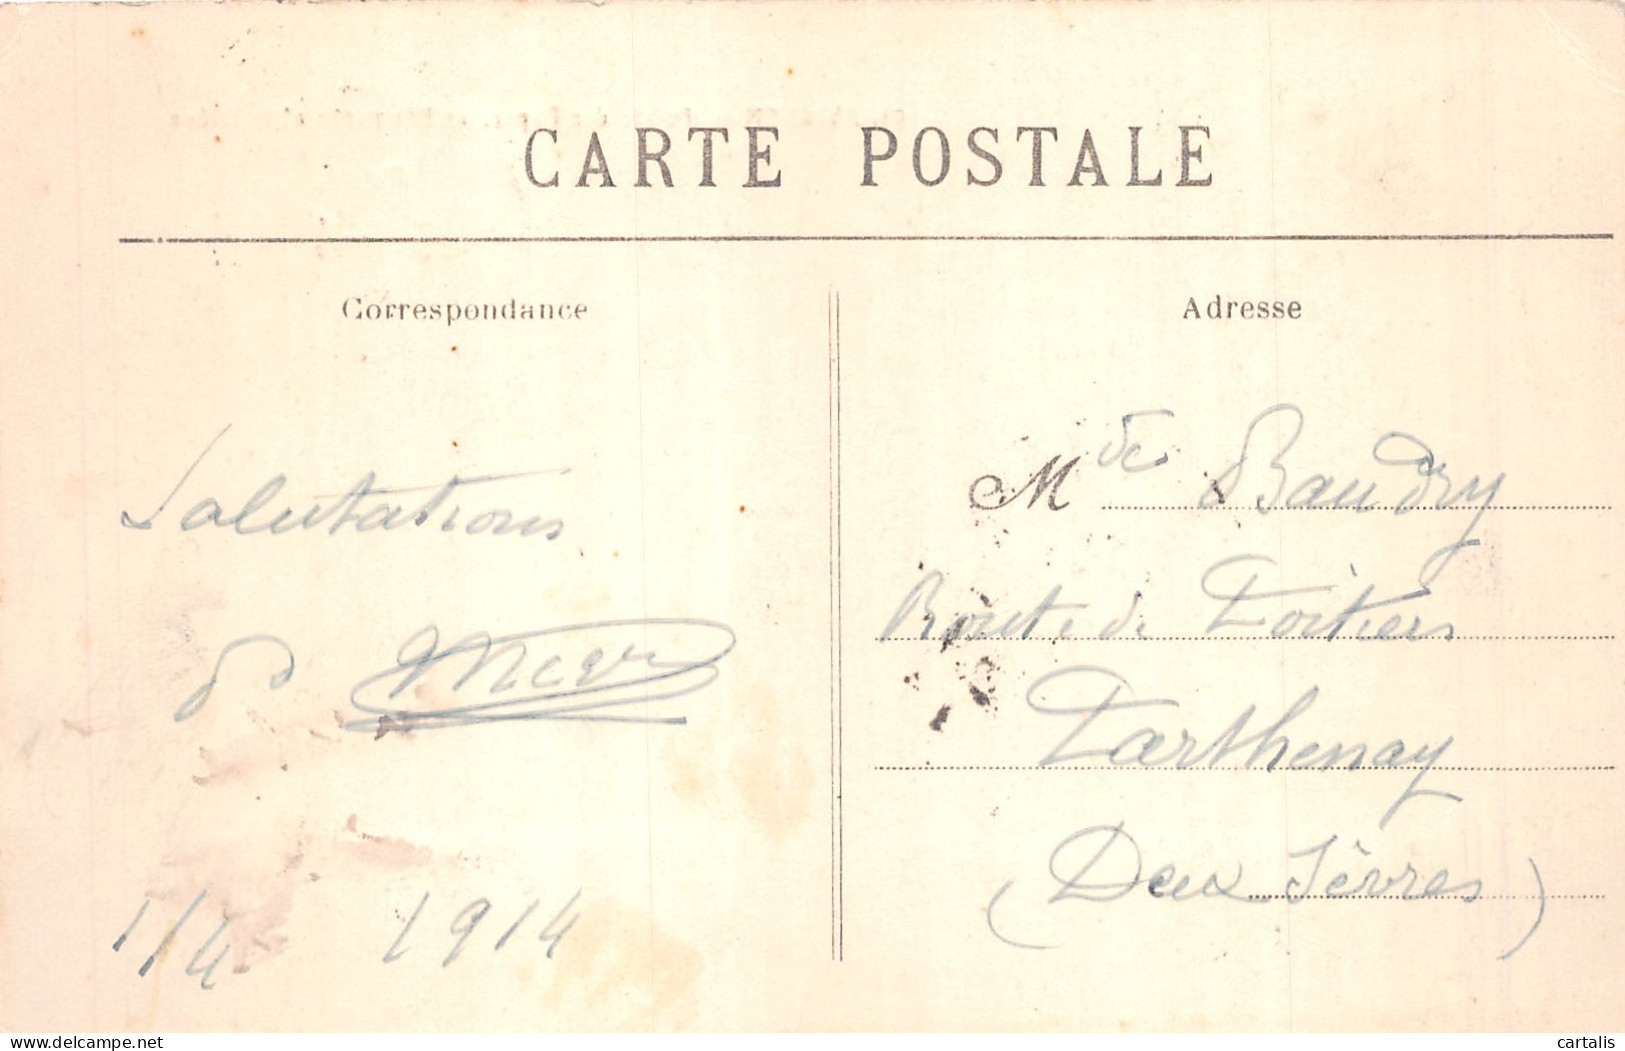 CARTE POSTALE
Correspondance
Salutations
1/4 1914
Adresse
Mde Baudry
Route de Poitiers
Parthenay
(Deux Sèvres)
delcampe.net
cartalis